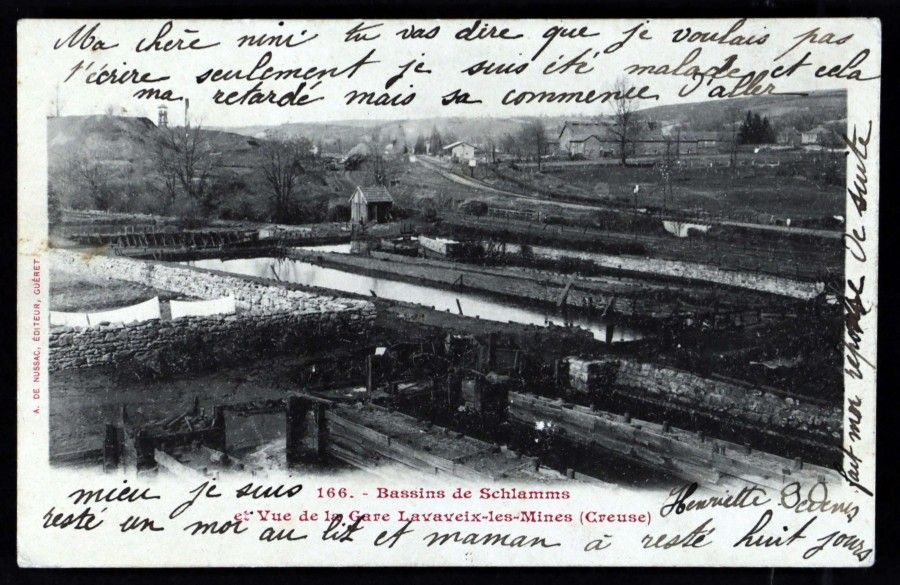 Ma chère nini tu vas dire que je voulais pas
t'écrire seulement je suis été malade et cela
ma retardé mais sa commence d'aller
mieu je suis
resté un moi au lit et maman à resté huit jours
fait moi reponse de suite
Henriette
166. - Bassins de Schlamms
et Vue de la Gare Lavaveix-les-Mines (Creuse)
A. DE NUSSAC, ÉDITEUR, GUÉRET